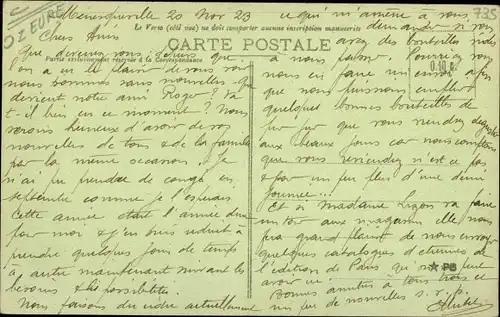 Menesqueville 20 Nov 23
Chers Amis
Que devenez vous depuis que
on a eu le plaisir de vous voir
nous sommes sans nouvelles. Que
devient notre ami Roger? Va
t-il bien en ce moment? Nous
serons heureux d'avoir de vos
nouvelles de tous & de la famille
par la même occasion. Je
n'ai pu prendre de congé en
septembre comme je l'espérais
Cette année était l'année dure
par moi & j'en suis réduit à
prendre quelques jours de temps
à autre maintenant suivant les
besoins & les possibilités.
Nous faisons du cidre actuellement
ce qui m'amène à vous
demander si vous
Le Verso (côté vue) ne doit comporter aucune inscription manuscrite
CARTE POSTALE
Partie exclusivement réservée à la Correspondance
avez des bouteilles vides
à nous passer. Pourriez vous
nous en faire un envoi afin
que nous puissions emplir
quelques bonnes bouteilles de
pur jus que vous viendrez déguster
aux beaux jours car nous comptons
que vous reviendrez n'est ce pas
& pour un peu plus d'une demi
journée...
Et si Madame va faire
un tour aux magasins elle nous
fera grand plaisir de nous envoyer
quelques catalogues d'étrennes de
l'édition de Paris qu'on
avoir ici
Bonnes amitiés à tous trois et
un peu de nouvelles s.v.p.
OZEURE
735
0.10 €
★ PB